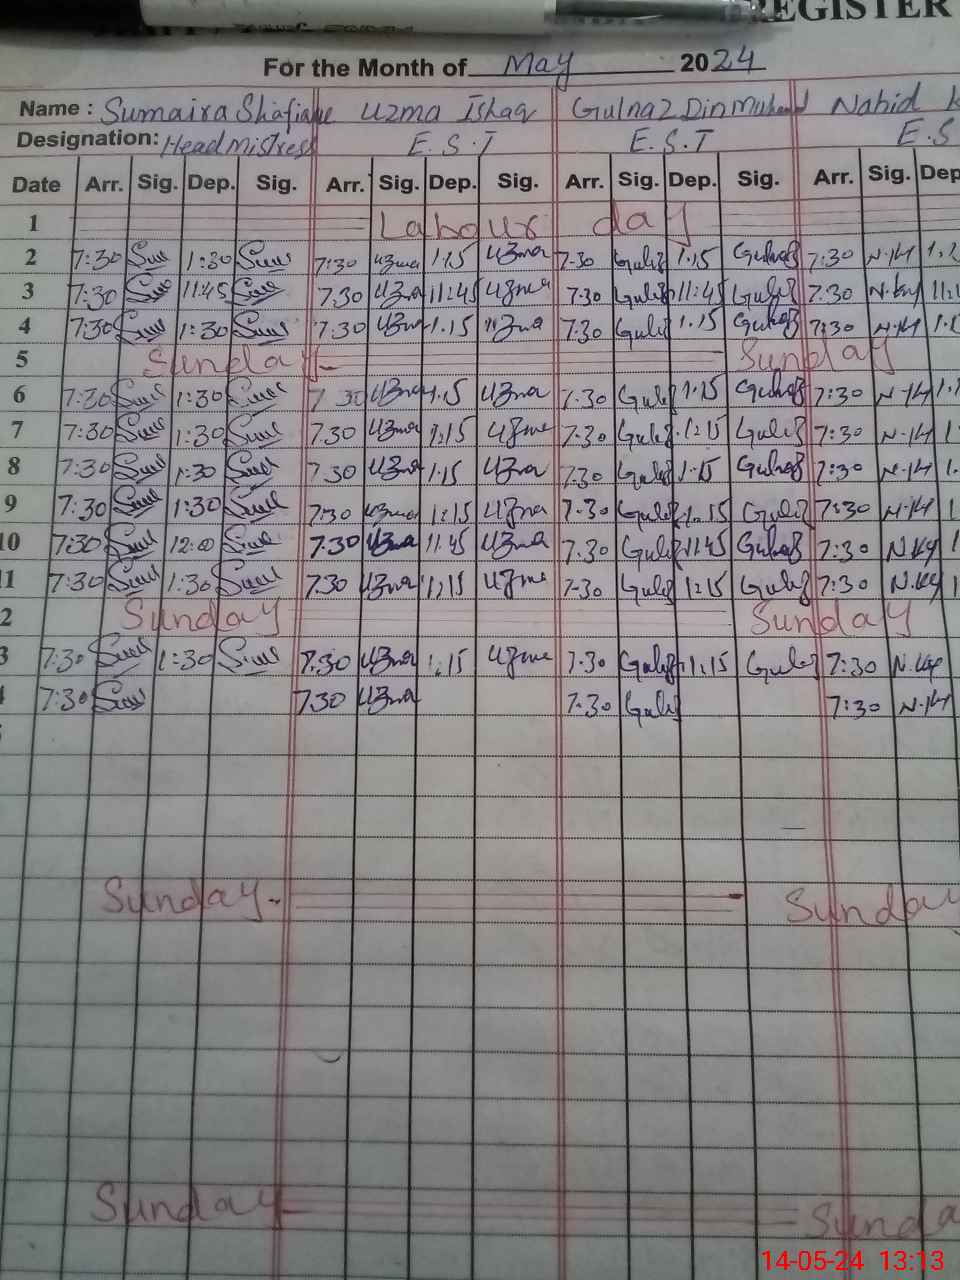 REGISTER
For the Month of May 2024
Name : Sumaira Shafique Uzma Ishaq Gulnaz Din Muhammad Nahid K
Designation: Headmistress E.S.T E.S.T E.S
Date Arr. Sig. Dep. Sig. Arr. Sig. Dep. Sig. Arr. Sig. Dep. Sig. Arr. Sig. Dep
1 Labour day
2 7:30 1:30 7:30 Uzma 1:15 Uzma 7:30 Gulnaz 1:15 Gulnaz 7:30 N.K
3 7:30 11:45 7:30 Uzma 11:45 Uzma 7:30 Gulnaz 11:45 Gulnaz 7:30 N.K
4 7:30 1:30 7:30 Uzma 1.15 Uzma 7:30 Gulnaz 1.15 Gulnaz 7:30 N.K
5 Sunday Sunday
6 7:30 1:30 7 30 Uzma 1.15 Uzma 7.30 Gulnaz 1:15 Gulnaz 7:30 N.K
7 7:30 1:30 7.30 Uzma 1:15 Uzma 7.30 Gulnaz 1:15 Gulnaz 7:30 N.K
8 7:30 1:30 7.30 Uzma 1.15 Uzma 7.30 Gulnaz 1.15 Gulnaz 7:30 N.K
9 7:30 1:30 7:30 Uzma 1:15 Uzma 7.30 Gulnaz 1.15 Gulnaz 7:30 N.K
10 7:30 12:00 7:30 Uzma 11.45 Uzma 7.30 Gulnaz 11:45 Gulnaz 7:30 N.K
11 7:30 1:30 7.30 Uzma 1:15 Uzma 7.30 Gulnaz 1:15 Gulnaz 7:30 N.K
2 Sunday Sunday
3 7:30 1:30 7.30 Uzma 1.15 Uzma 7.30 Gulnaz 1.15 Gulnaz 7:30 N.K
7:30 7.30 Uzma 7.30 Gulnaz 7:30 N.K
Sunday Sunday
Sunday Sunda
14-05-24 13:13